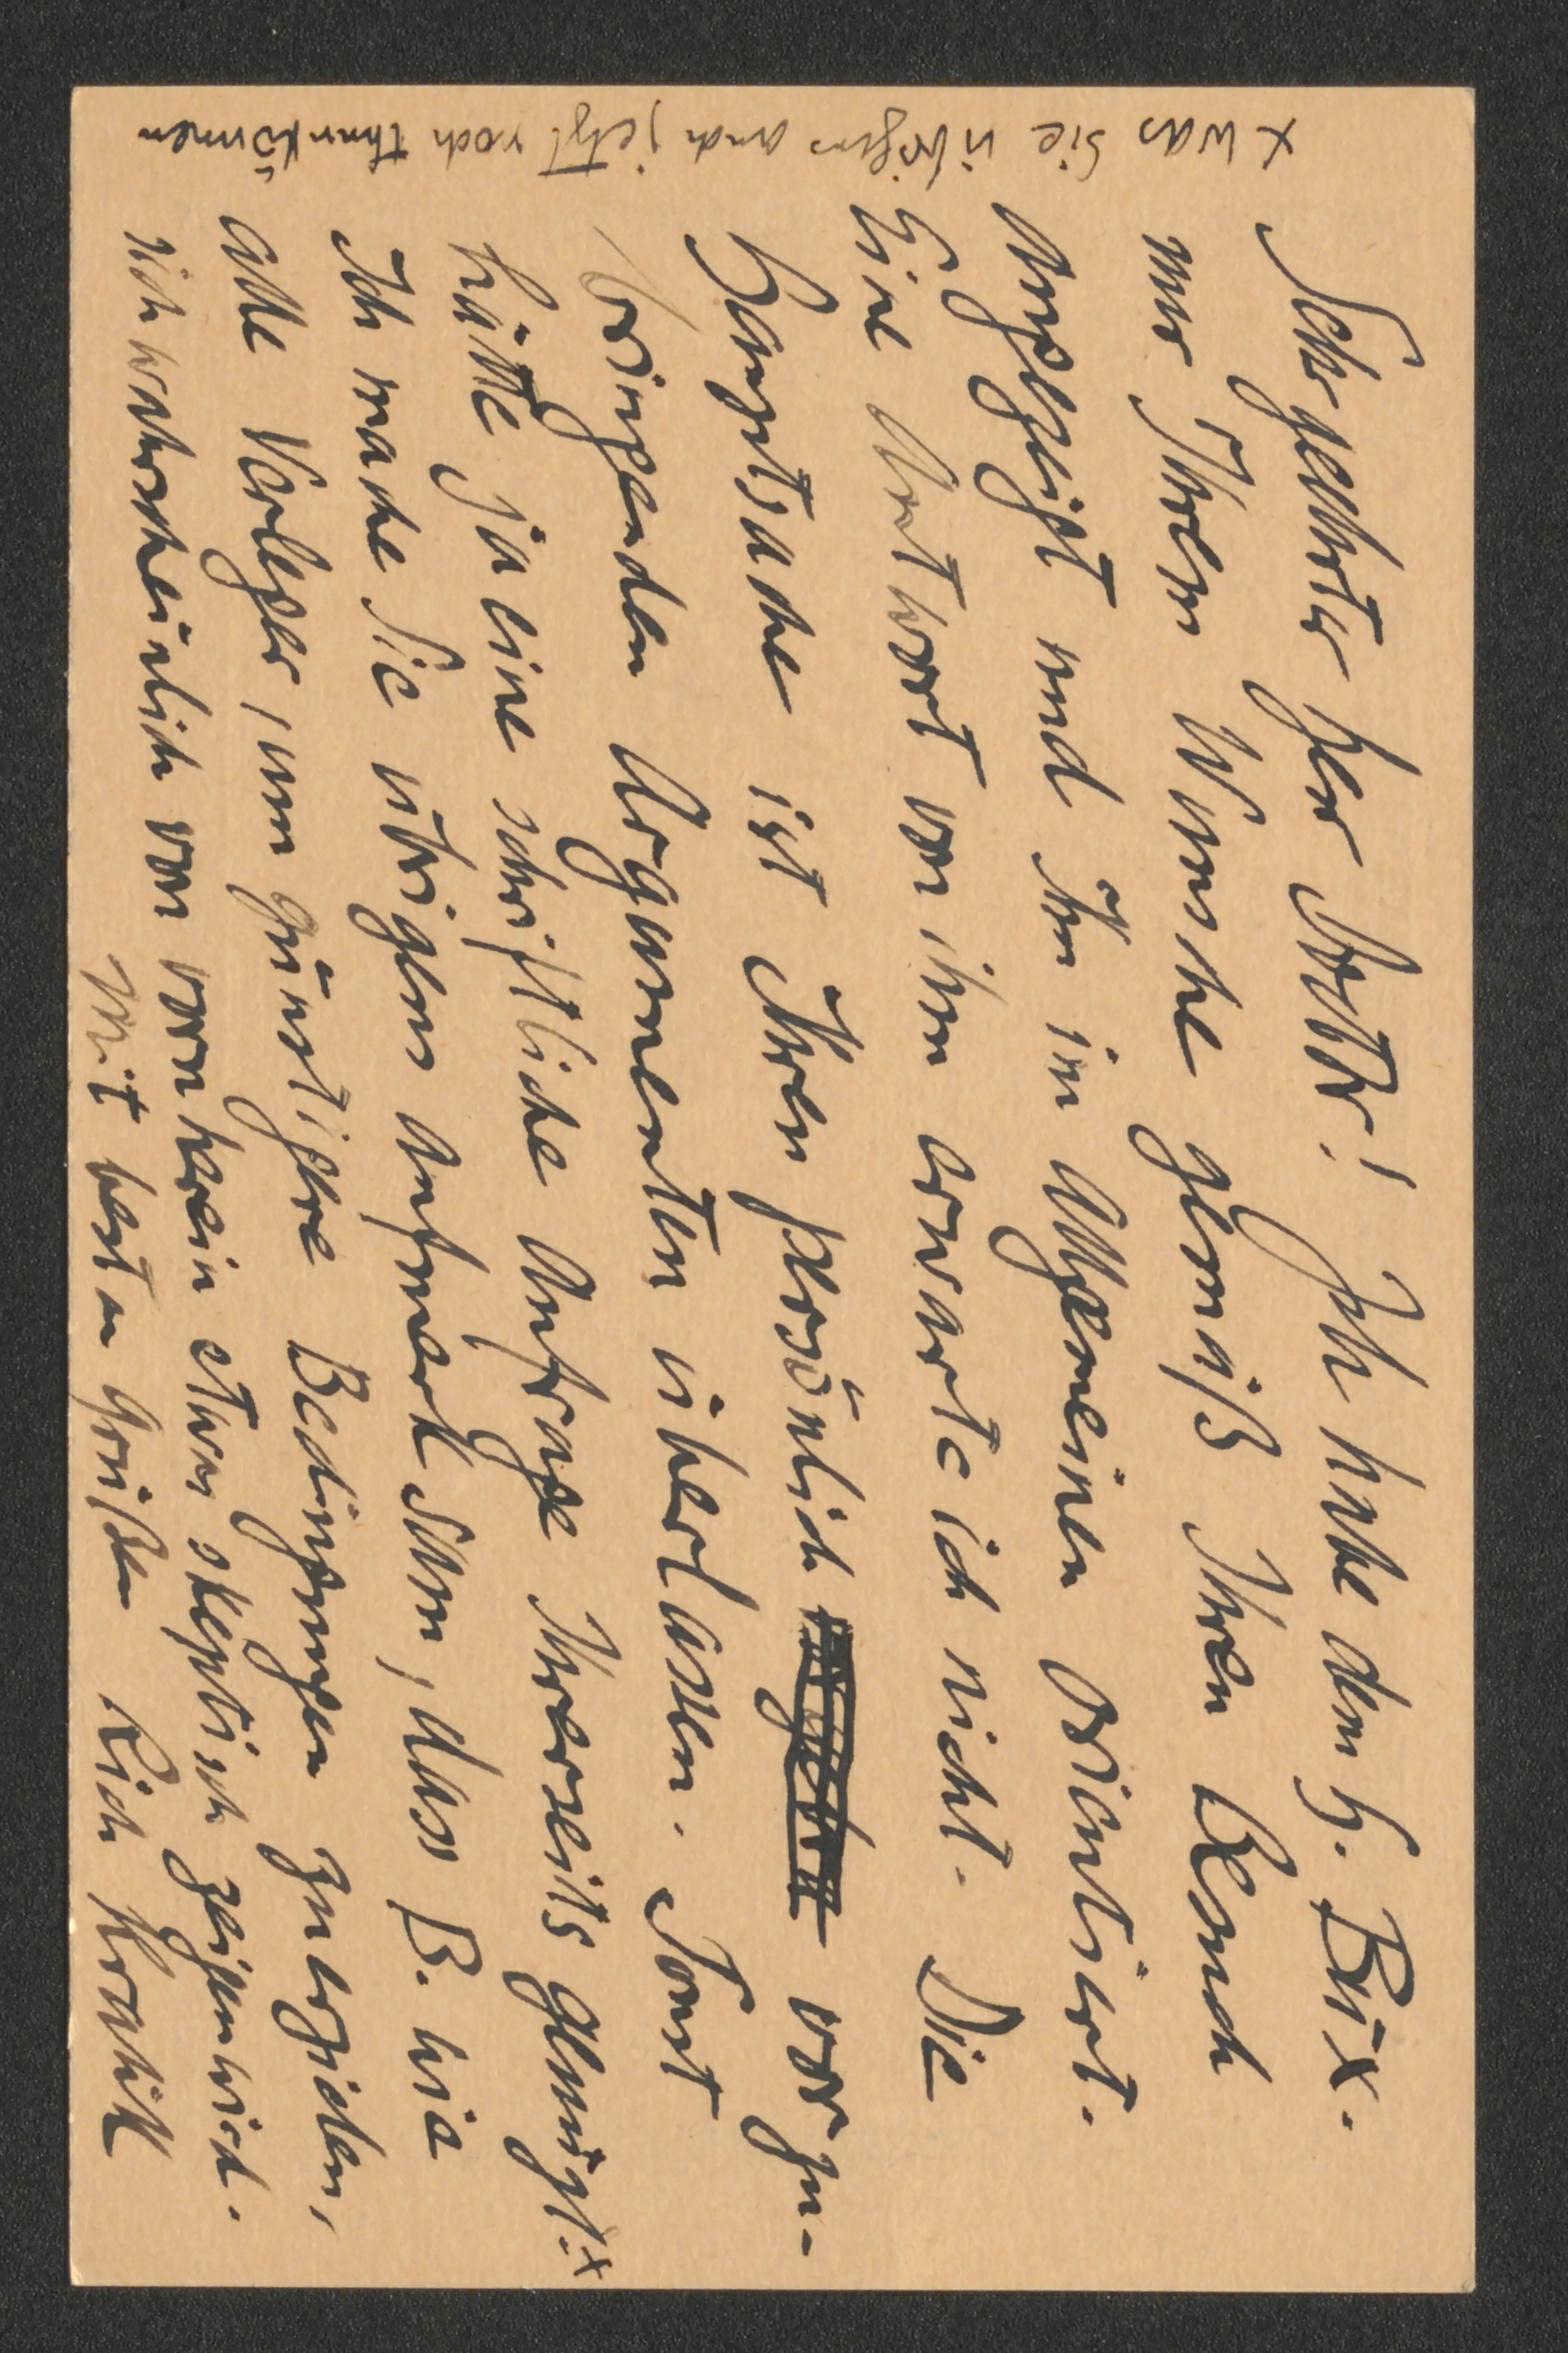 Sehr geehrter Herr Doktor! Ich habe dem H. Bix.
nur Ihrem Wunsche gemäß Ihren Besuch
angezeigt und ihn im Allgemeinen orientiert.
Eine Antwort von ihm erwarte ich nicht. Die
Hauptsache ist Ihren persönlich vorzu-
bringenden Argumenten überlassen. Sonst
hätte ja eine schriftliche Anfrage Ihrerseits genügt.x
Ich mache Sie übrigens aufmerksam, dass B. wie
alle Verleger, um günstigere Bedingungen zu erzielen,
sich wahrscheinlich von vornherein etwas skeptisch zeigen wird.
Mit besten Grüßen Rich Kralik
x was Sie übrigens auch jetzt noch thun können